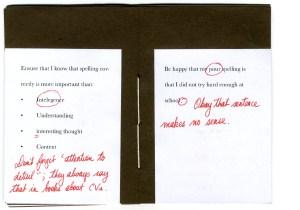 Ensure that I know that spelling cor-
rectly is more important than:
• Intelegence
• Understanding
• interesting thought
• Content
Don't forget "attention to
detail"; they always say
that in books about CVs.
Be happy that my pour spelling is
that I did not try hard enough at
school
Okay that sentence
makes no sense.